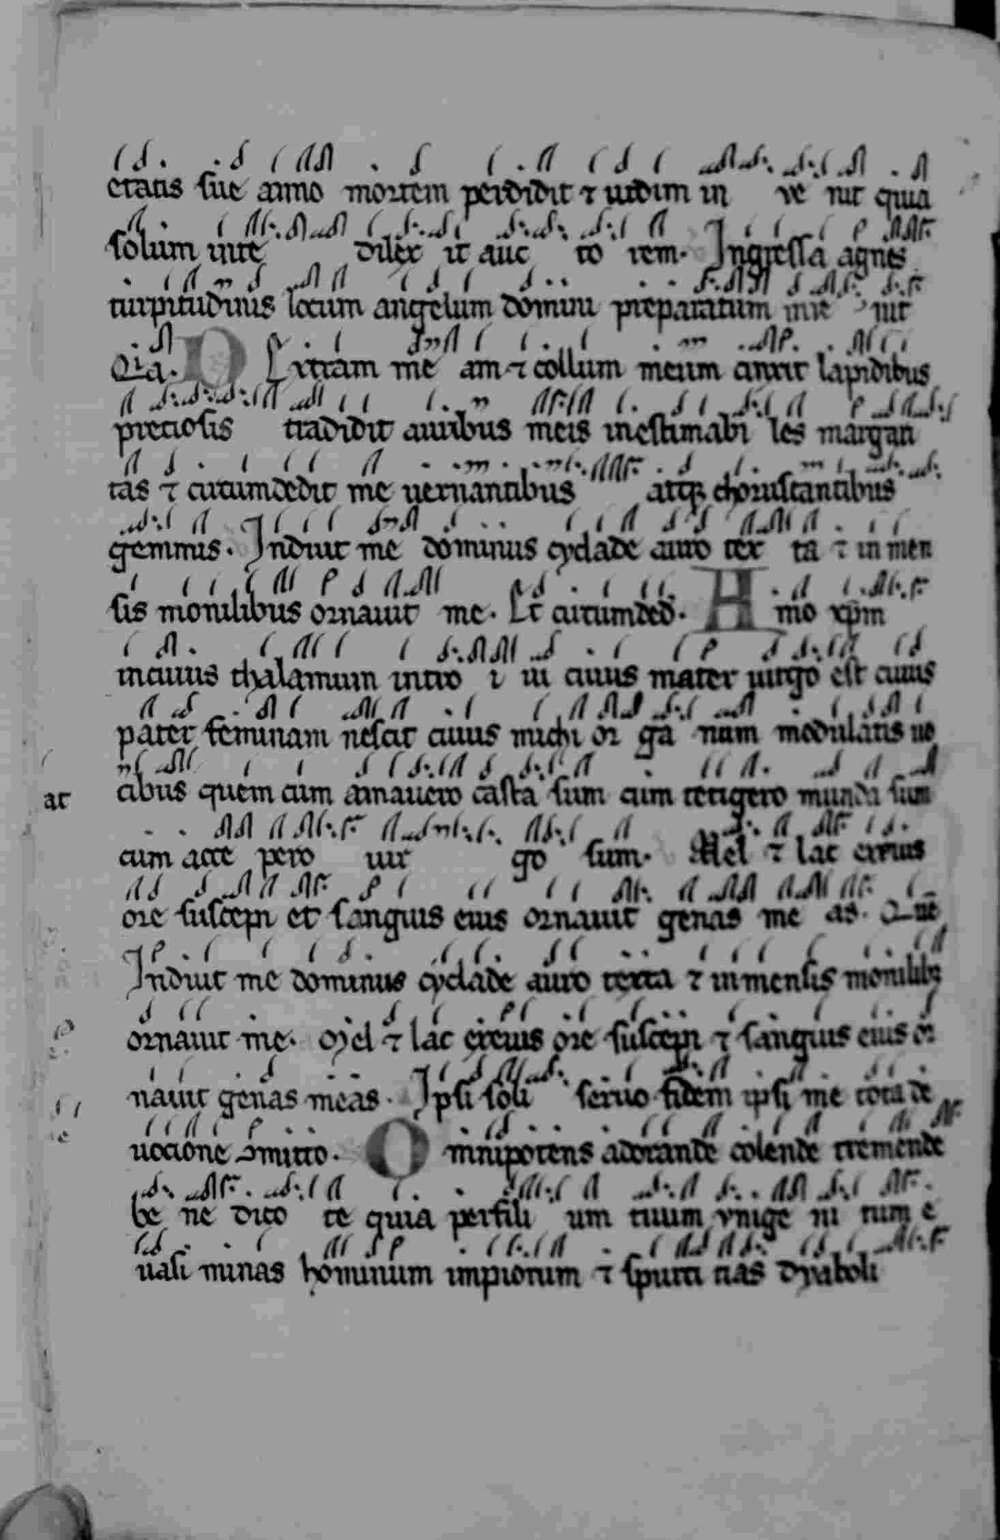 etatis sue anno mortem perdidit ⁊ uitam in ve nit quia
solum uite dilex it auc to rem. Ingressa agnes
turpitudinis locum angelum domini preparatum inve nit
Q̇a. D Extram me am ⁊ collum meum cinxit lapidibus
preciosis tradidit auribus meis inestimabi les margari
tas ⁊ circumdedit me uernantibus atq; choruscantibus
gemmis. Induit me dominus cyclade auro tex ta ⁊ in men
sis monilibus ornauit me. Et circumded. A mo xp̄m
in cuius thalamum intro i ui cuius mater uirgo est cuius
pater feminam nescit cuius michi or ga num modulatis uo
ac cibus quem cum amauero casta sum cum tetigero munda sum
cum acce pero uir go sum. Mel ⁊ lac ex eius
ore suscepi et sanguis eius ornauit genas me as.
Induit me dominus cyclade auro texta ⁊ inmensis monilib;
ornauit me. Mel ⁊ lac ex eius ore suscepi ⁊ sanguis eius or
nauit genas meas. Ipsi soli seruo fidem ipsi me tota de
uocione ɔmitto. O mnipotens adorande colende tremende
be ne dico te quia per fili um tuum vnige ni tum e
uasi minas hominum impiorum ⁊ spurci cias dyaboli